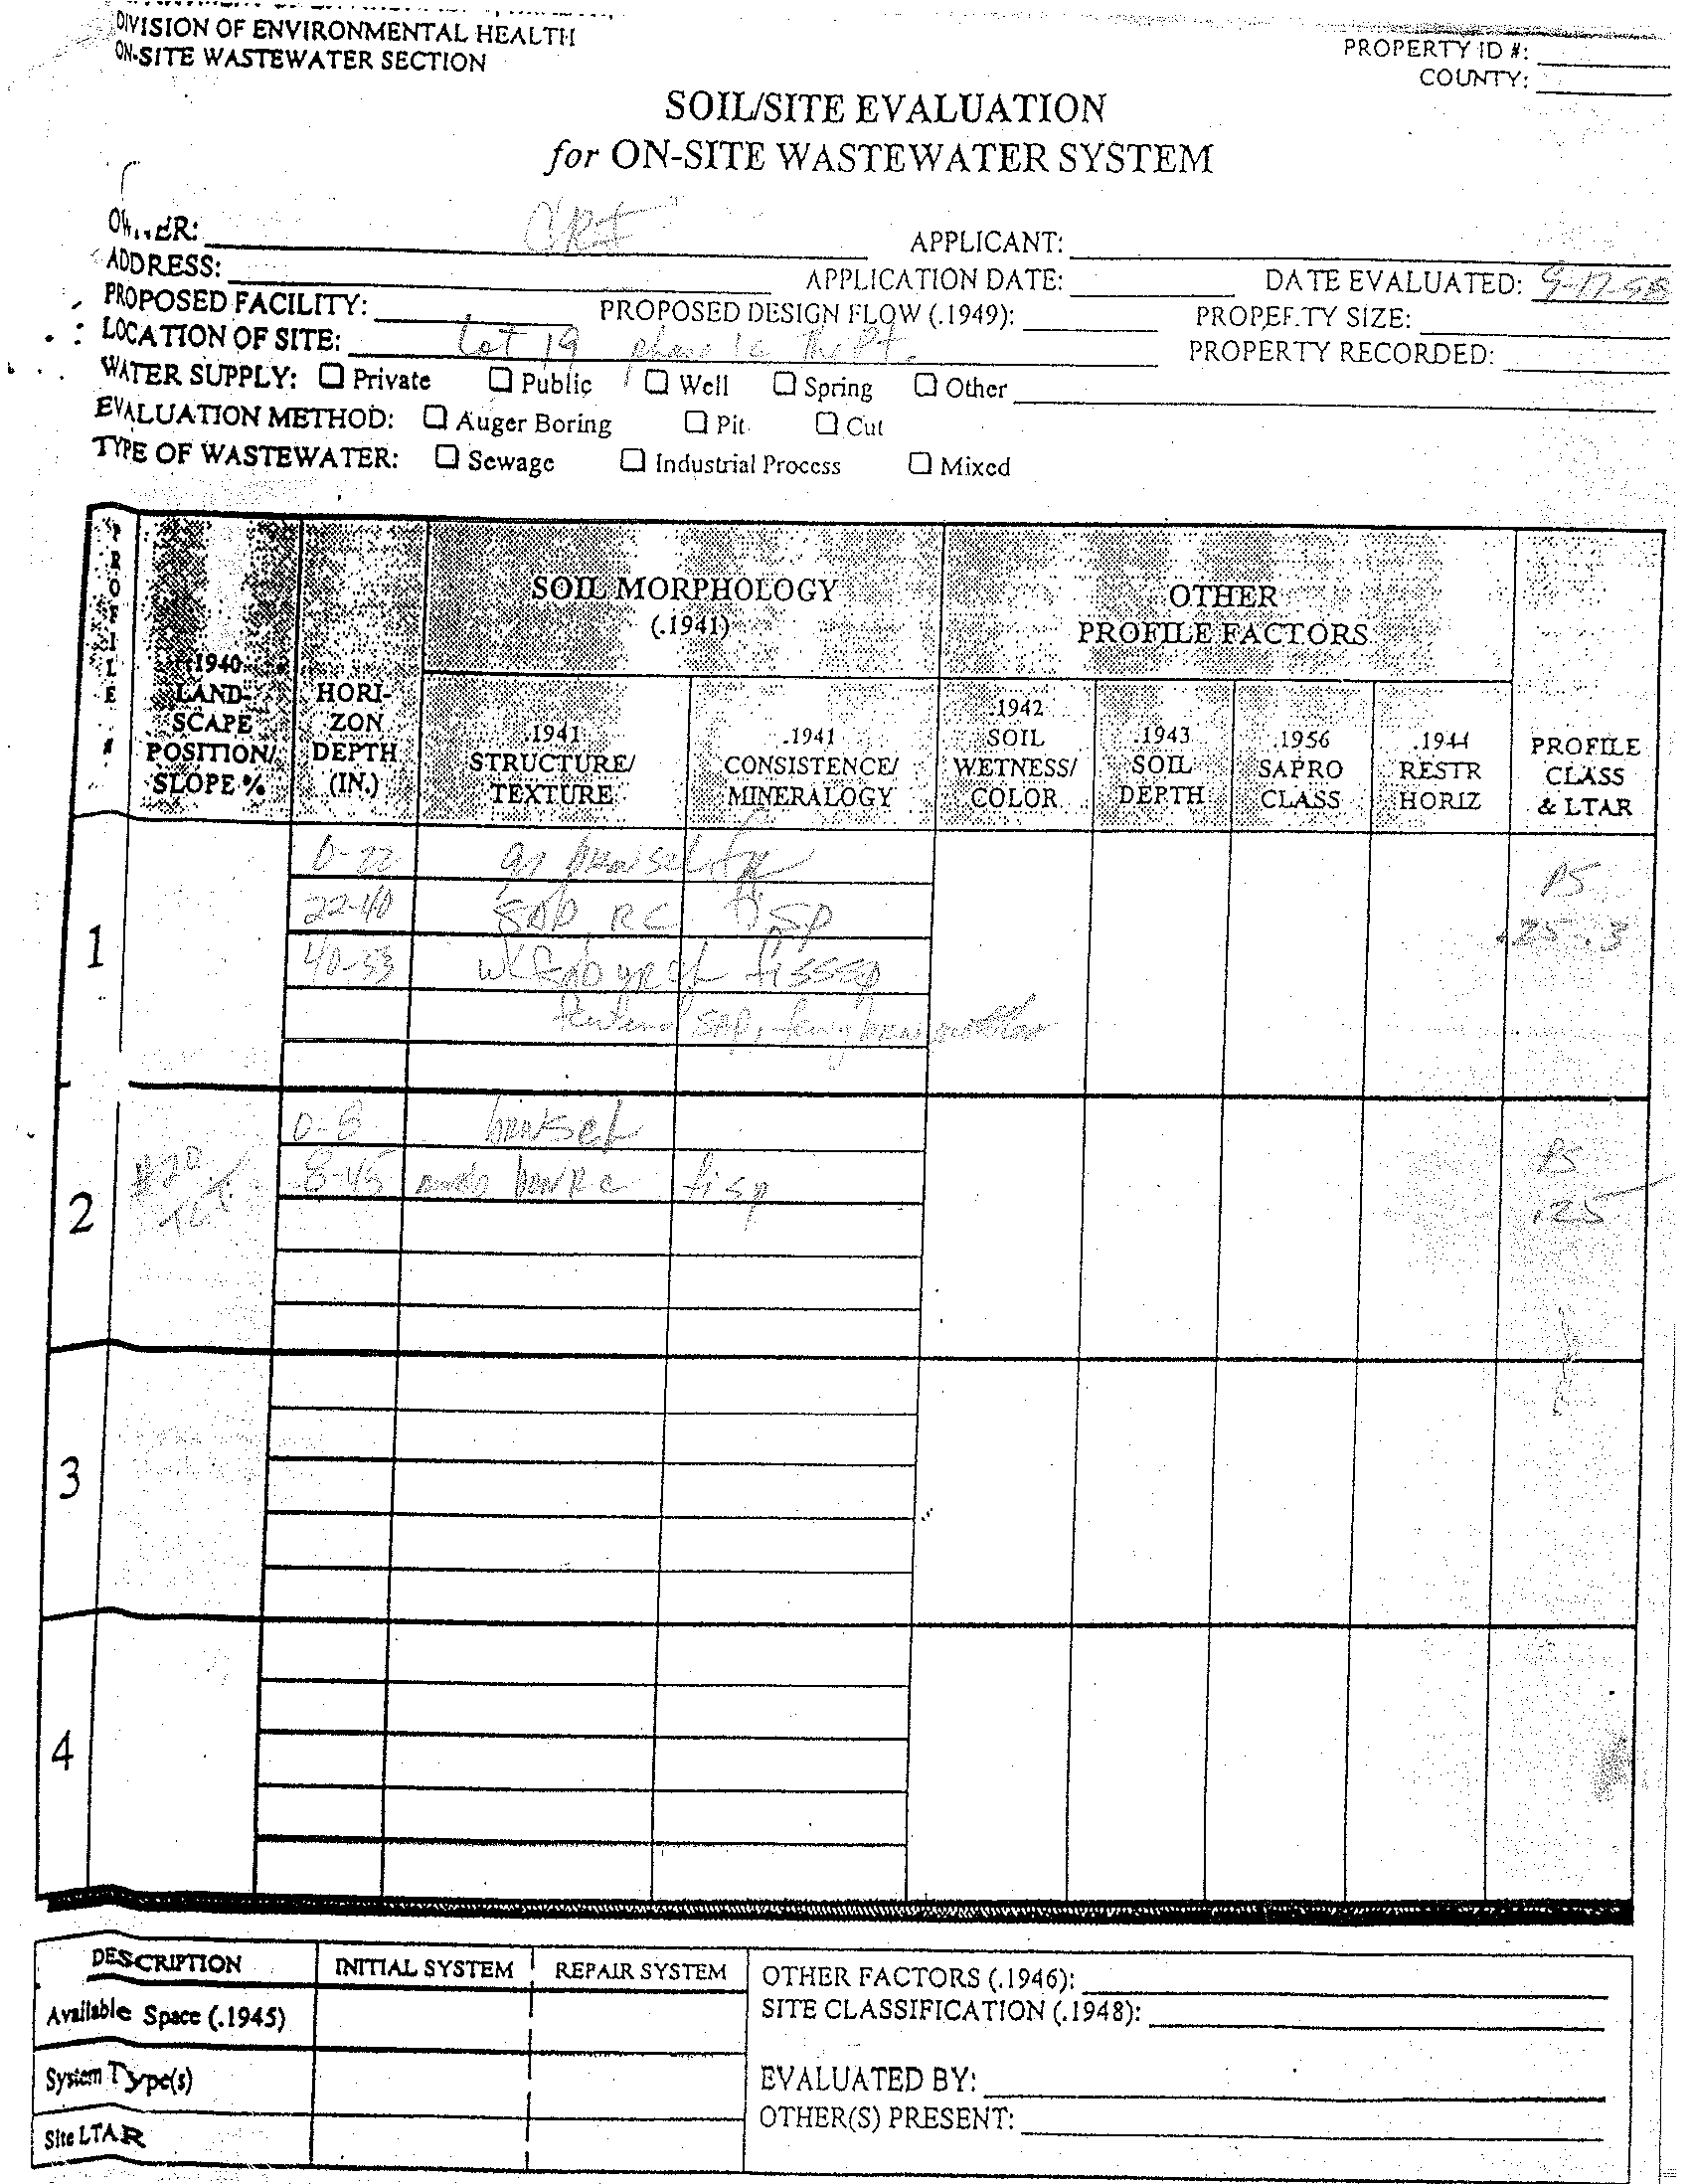 DIVISION OF ENVIRONMENTAL HEALTH
ON-SITE WASTEWATER SECTION
PROPERTY ID #:
COUNTY:
SOIL/SITE EVALUATION
for ON-SITE WASTEWATER SYSTEM
OWNER:
APPLICANT:
ADDRESS:
APPLICATION DATE:
DATE EVALUATED: 9-17-98
PROPOSED FACILITY:
PROPOSED DESIGN FLOW (.1949):
PROPERTY SIZE:
LOCATION OF SITE: Lot 19 phase 1c
PROPERTY RECORDED:
WATER SUPPLY: Private Public Well Spring Other
EVALUATION METHOD: Auger Boring Pit Cut
TYPE OF WASTEWATER: Sewage Industrial Process Mixed
PROFILE #
.1940 LAND-SCAPE POSITION/ SLOPE %
HORI-ZON DEPTH (IN.)
SOIL MORPHOLOGY
(.1941)
.1941 STRUCTURE/ TEXTURE
.1941 CONSISTENCE/ MINERALOGY
OTHER
PROFILE FACTORS
.1942 SOIL WETNESS/ COLOR
.1943 SOIL DEPTH
.1956 SAPRO CLASS
.1944 RESTR HORIZ
PROFILE CLASS & LTAR
1
0-22
PS
22-40 RC fi sp
.25-.3
40-53
SAP,
2
0-8
PS
8-45 fi sp
.25
3
4
DESCRIPTION
INITIAL SYSTEM
REPAIR SYSTEM
OTHER FACTORS (.1946):
Available Space (.1945)
SITE CLASSIFICATION (.1948):
System Type(s)
EVALUATED BY:
OTHER(S) PRESENT:
Site LTAR